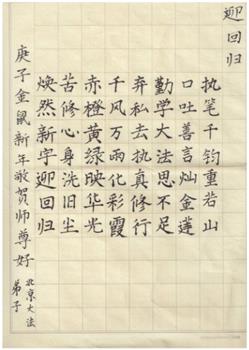 迎回归
执笔千钧重若山
口吐善言灿金莲
勤学大法思不足
弃私去执真修行
千风万雨化彩霞
赤橙黄绿映华光
苦修心身洗旧尘
焕然新宇迎回归
庚子金鼠新年敬贺师尊好
北京大法
弟子